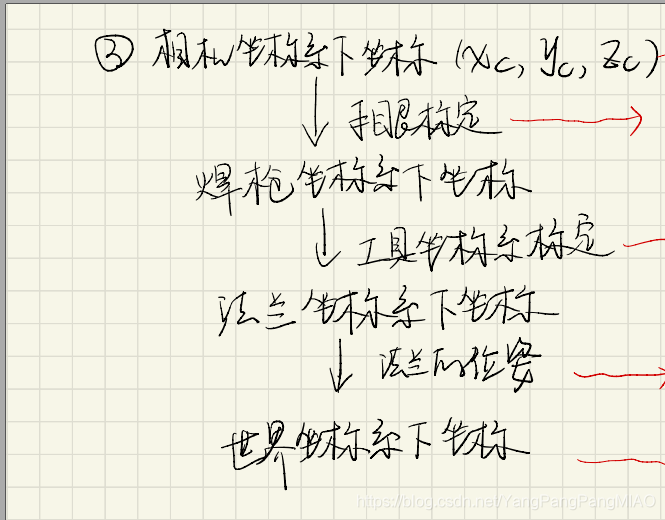 ③ 相机坐标系下坐标 (xc, yc, zc)
手眼标定
焊枪坐标系下坐标
工具坐标系标定
法兰坐标系下坐标
法兰的位姿
世界坐标系下坐标
https://blog.csdn.net/YangPangPangMIAO